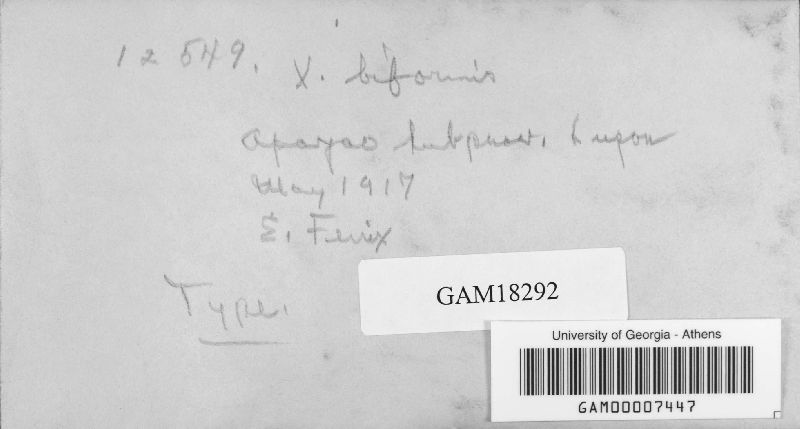 12549. X. biformis
Apayao Subprov. Luzon
May 1917
E. Fenix
Type.
GAM18292
University of Georgia - Athens
GAM00007447